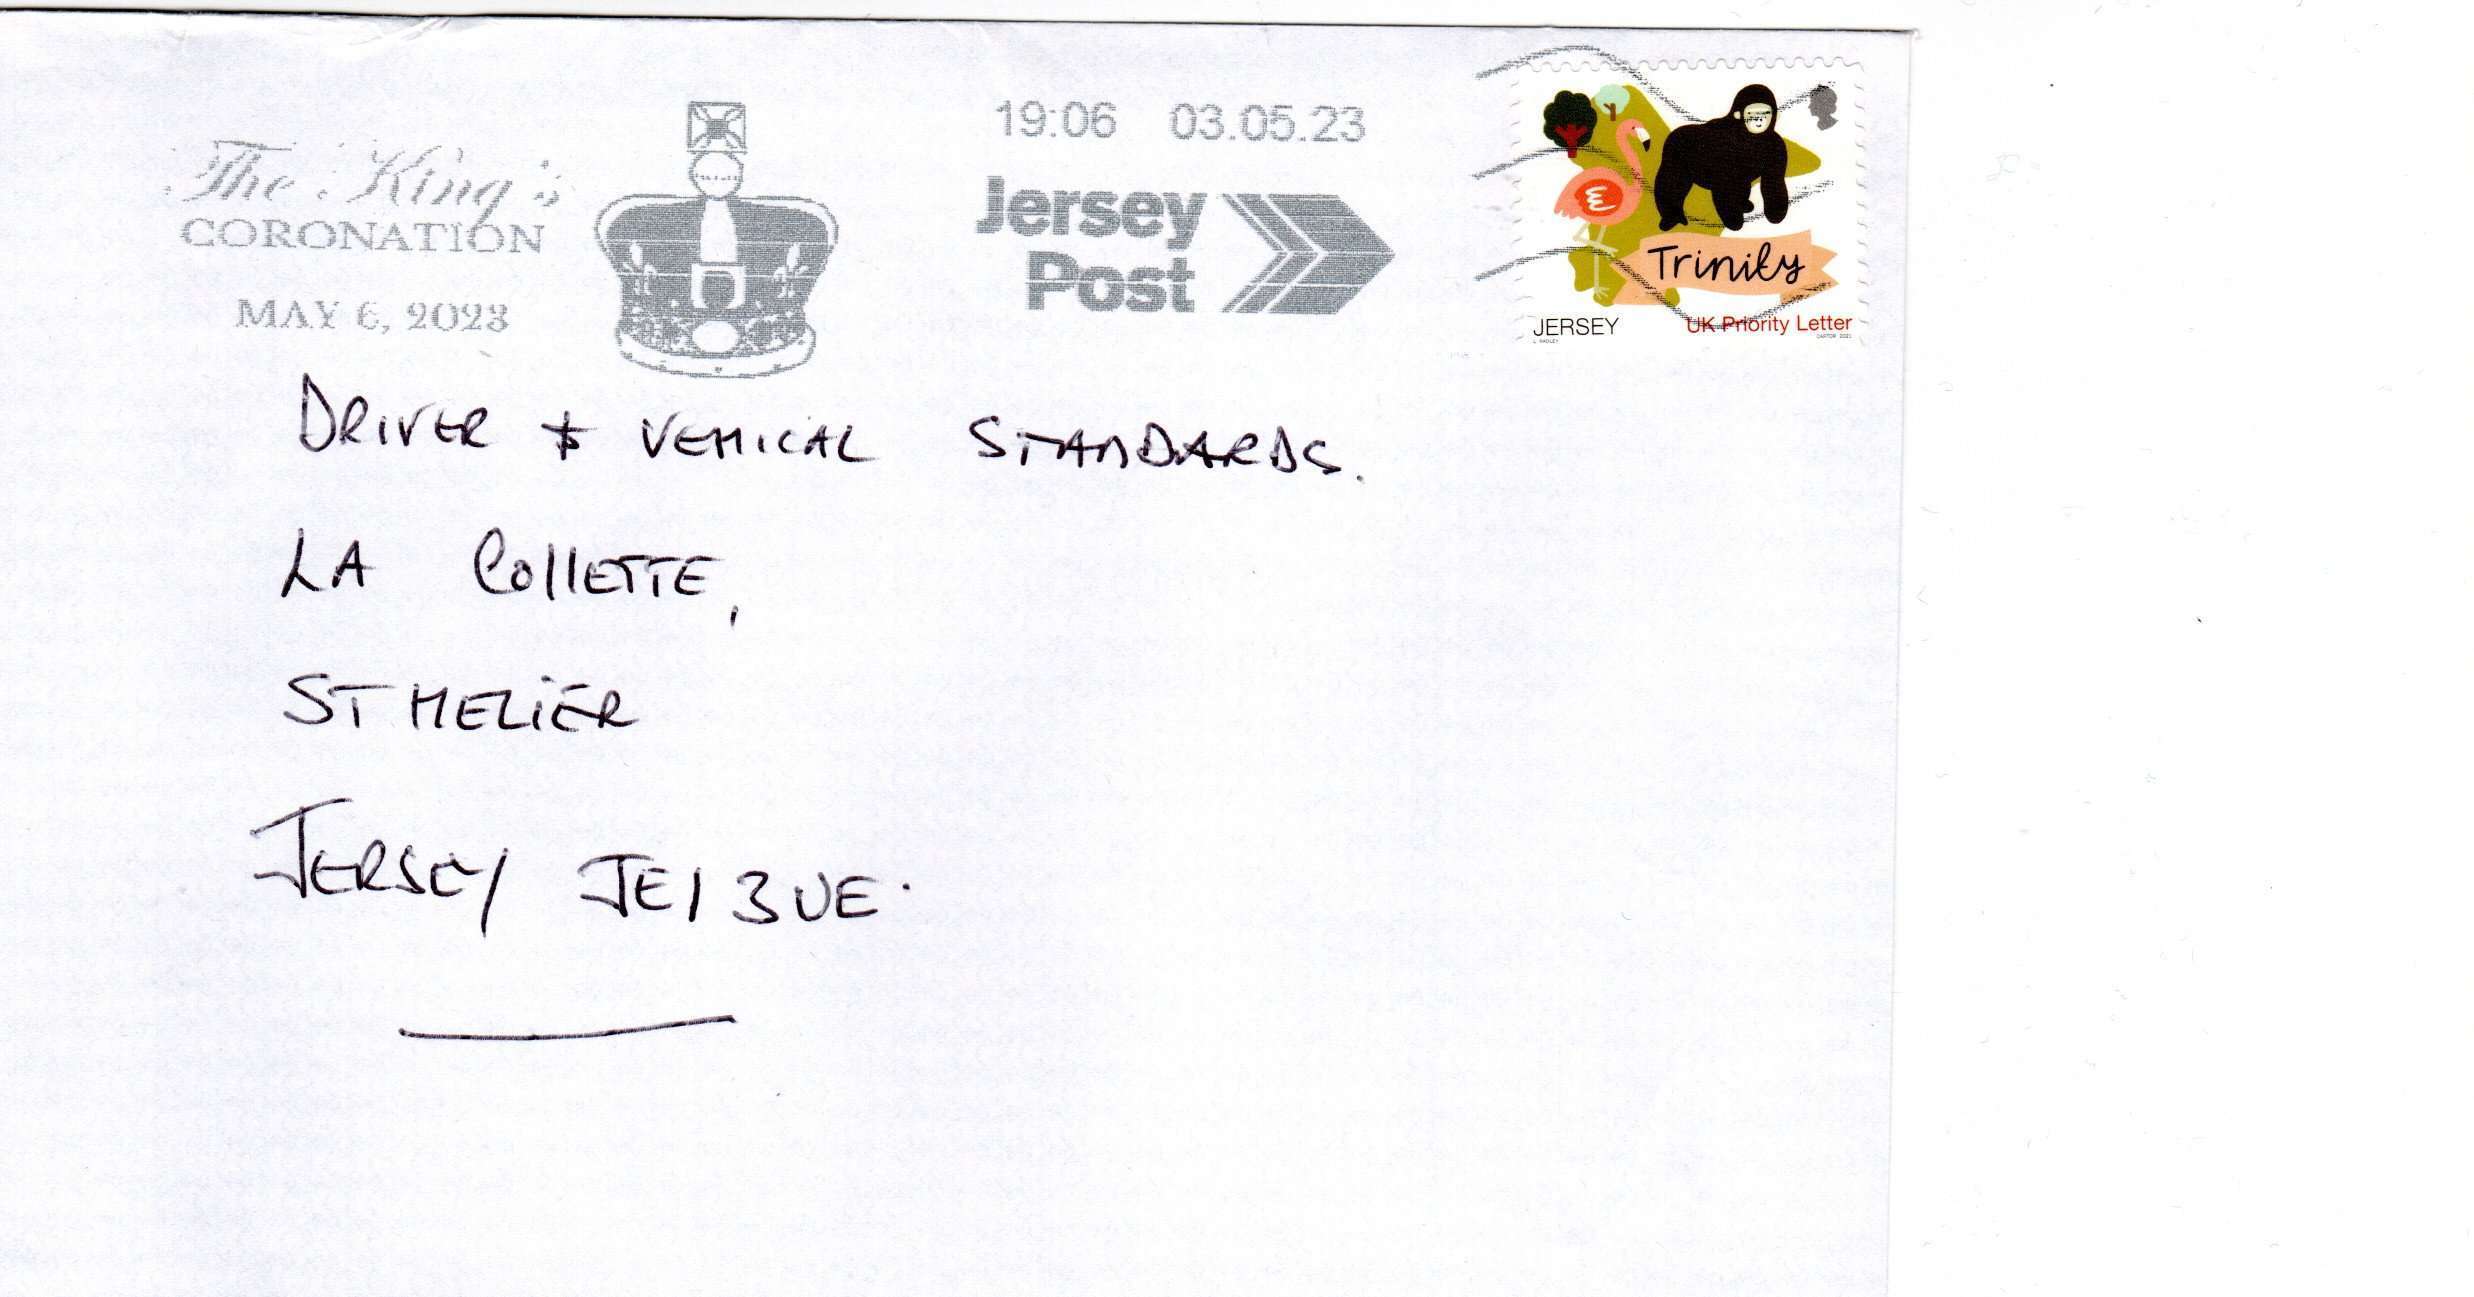 The King's
CORONATION
MAY 6, 2023
19:06 03.05.23
Jersey
Post
Trinity
JERSEY
UK Priority Letter
CARTOR 2021
DRIVER & VEHICAL STANDARDS.
LA COllETTE,
ST HELIER
JERSEY JE1 3UE.